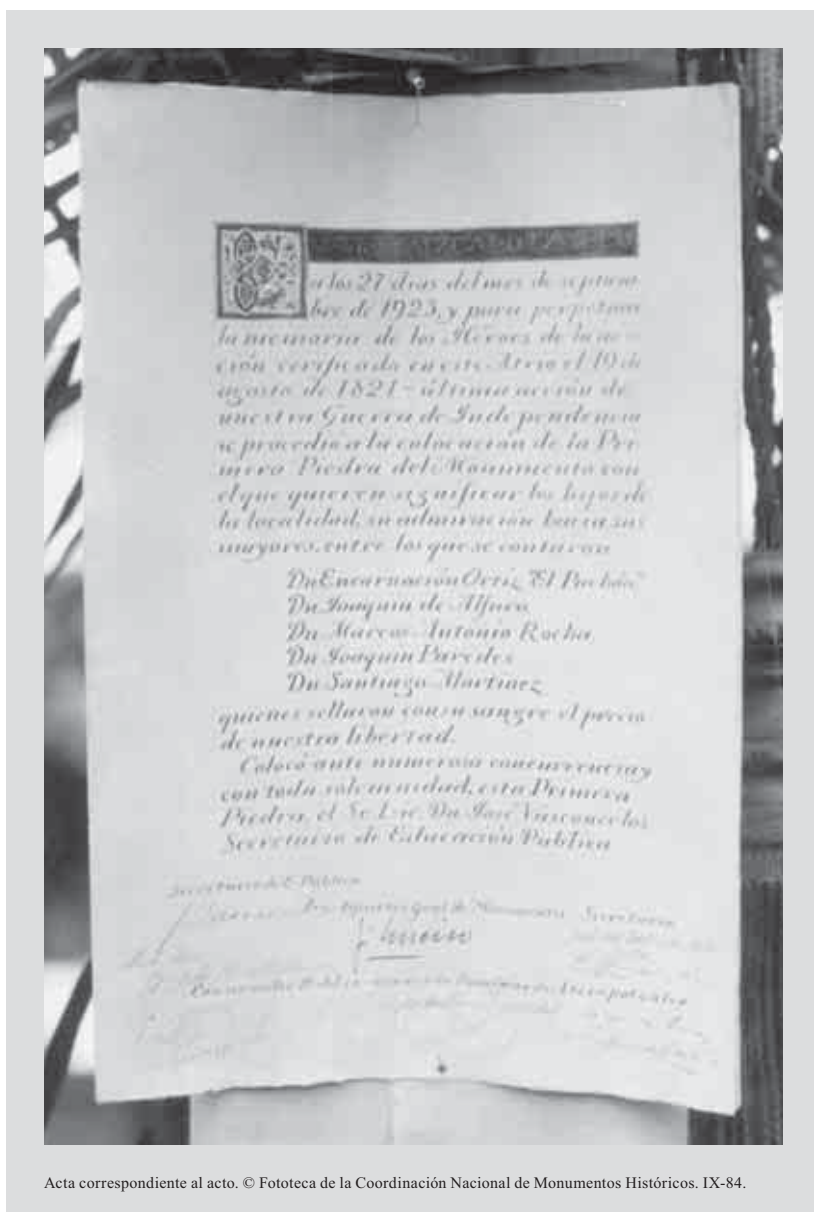 a los 27 dias del mes de septiem
bre de 1923, y para perpetuar
la memoria de los Héroes de la ac-
ción verificada en este Atrio el 19 de
agosto de 1821 - última acción de
nuestra Guerra de Independencia
se procedió a la colocación de la Pri-
mera Piedra del Monumento con
el que quieren significar los hijos de
la localidad, su admiración hacia sus
mayores, entre los que se contaron
Dn Encarnación Ortiz "El Pachón"
Dn Joaquin de Alfaro
Dn Marcos Antonio Rocha
Dn Joaquin Paredes
Dn Santiago Martinez
quienes sellaron con su sangre el precio
de nuestra libertad.
Colocó ante numerosa concurrencia y
con toda solemnidad, esta Primera
Piedra, el Sr Lic. Dn José Vasconcelos
Secretario de Educación Publica
Secretario de E. Pública
Inspector Gral de Monumentos Secretario
Acta correspondiente al acto. © Fototeca de la Coordinación Nacional de Monumentos Históricos. IX-84.